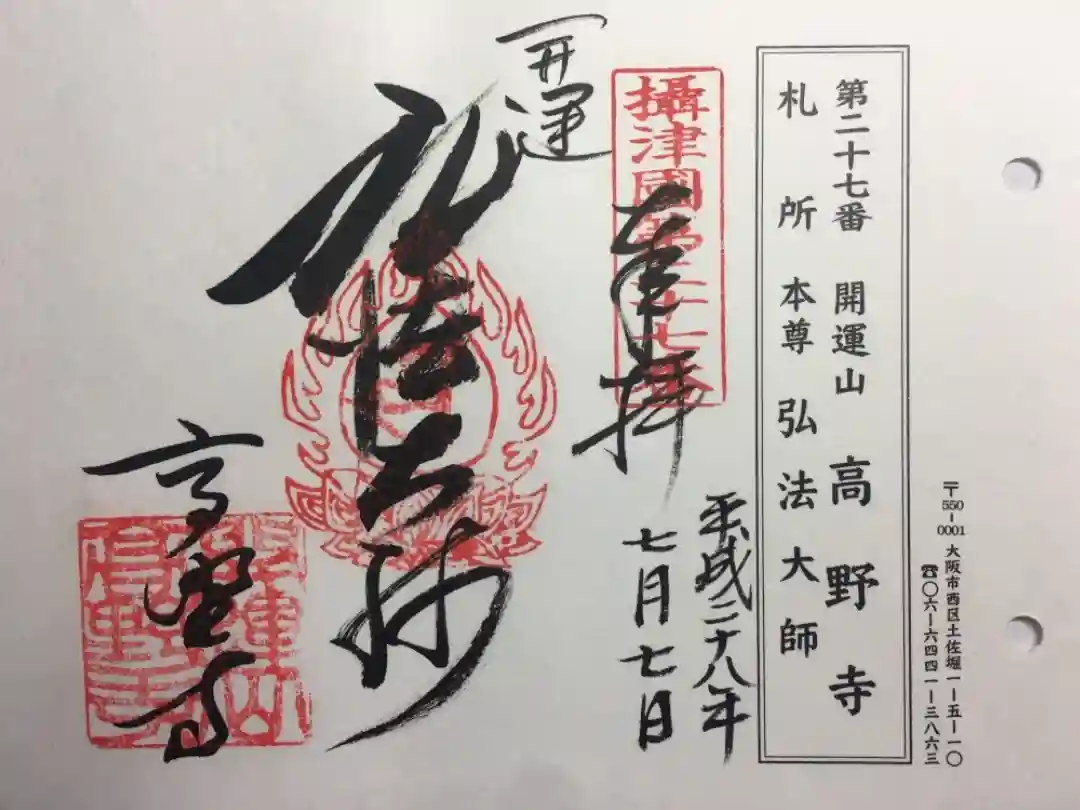 〒550-0001 大阪市西区土佐堀一-五-一〇
☎〇六-六四四一-三八六三
第二十七番 開運山 高野寺
札所 本尊 弘法大師
攝津國第二十七番
奉拝
平成二十八年
七月七日
開運
弘法大師
高野寺
開運山
高野寺